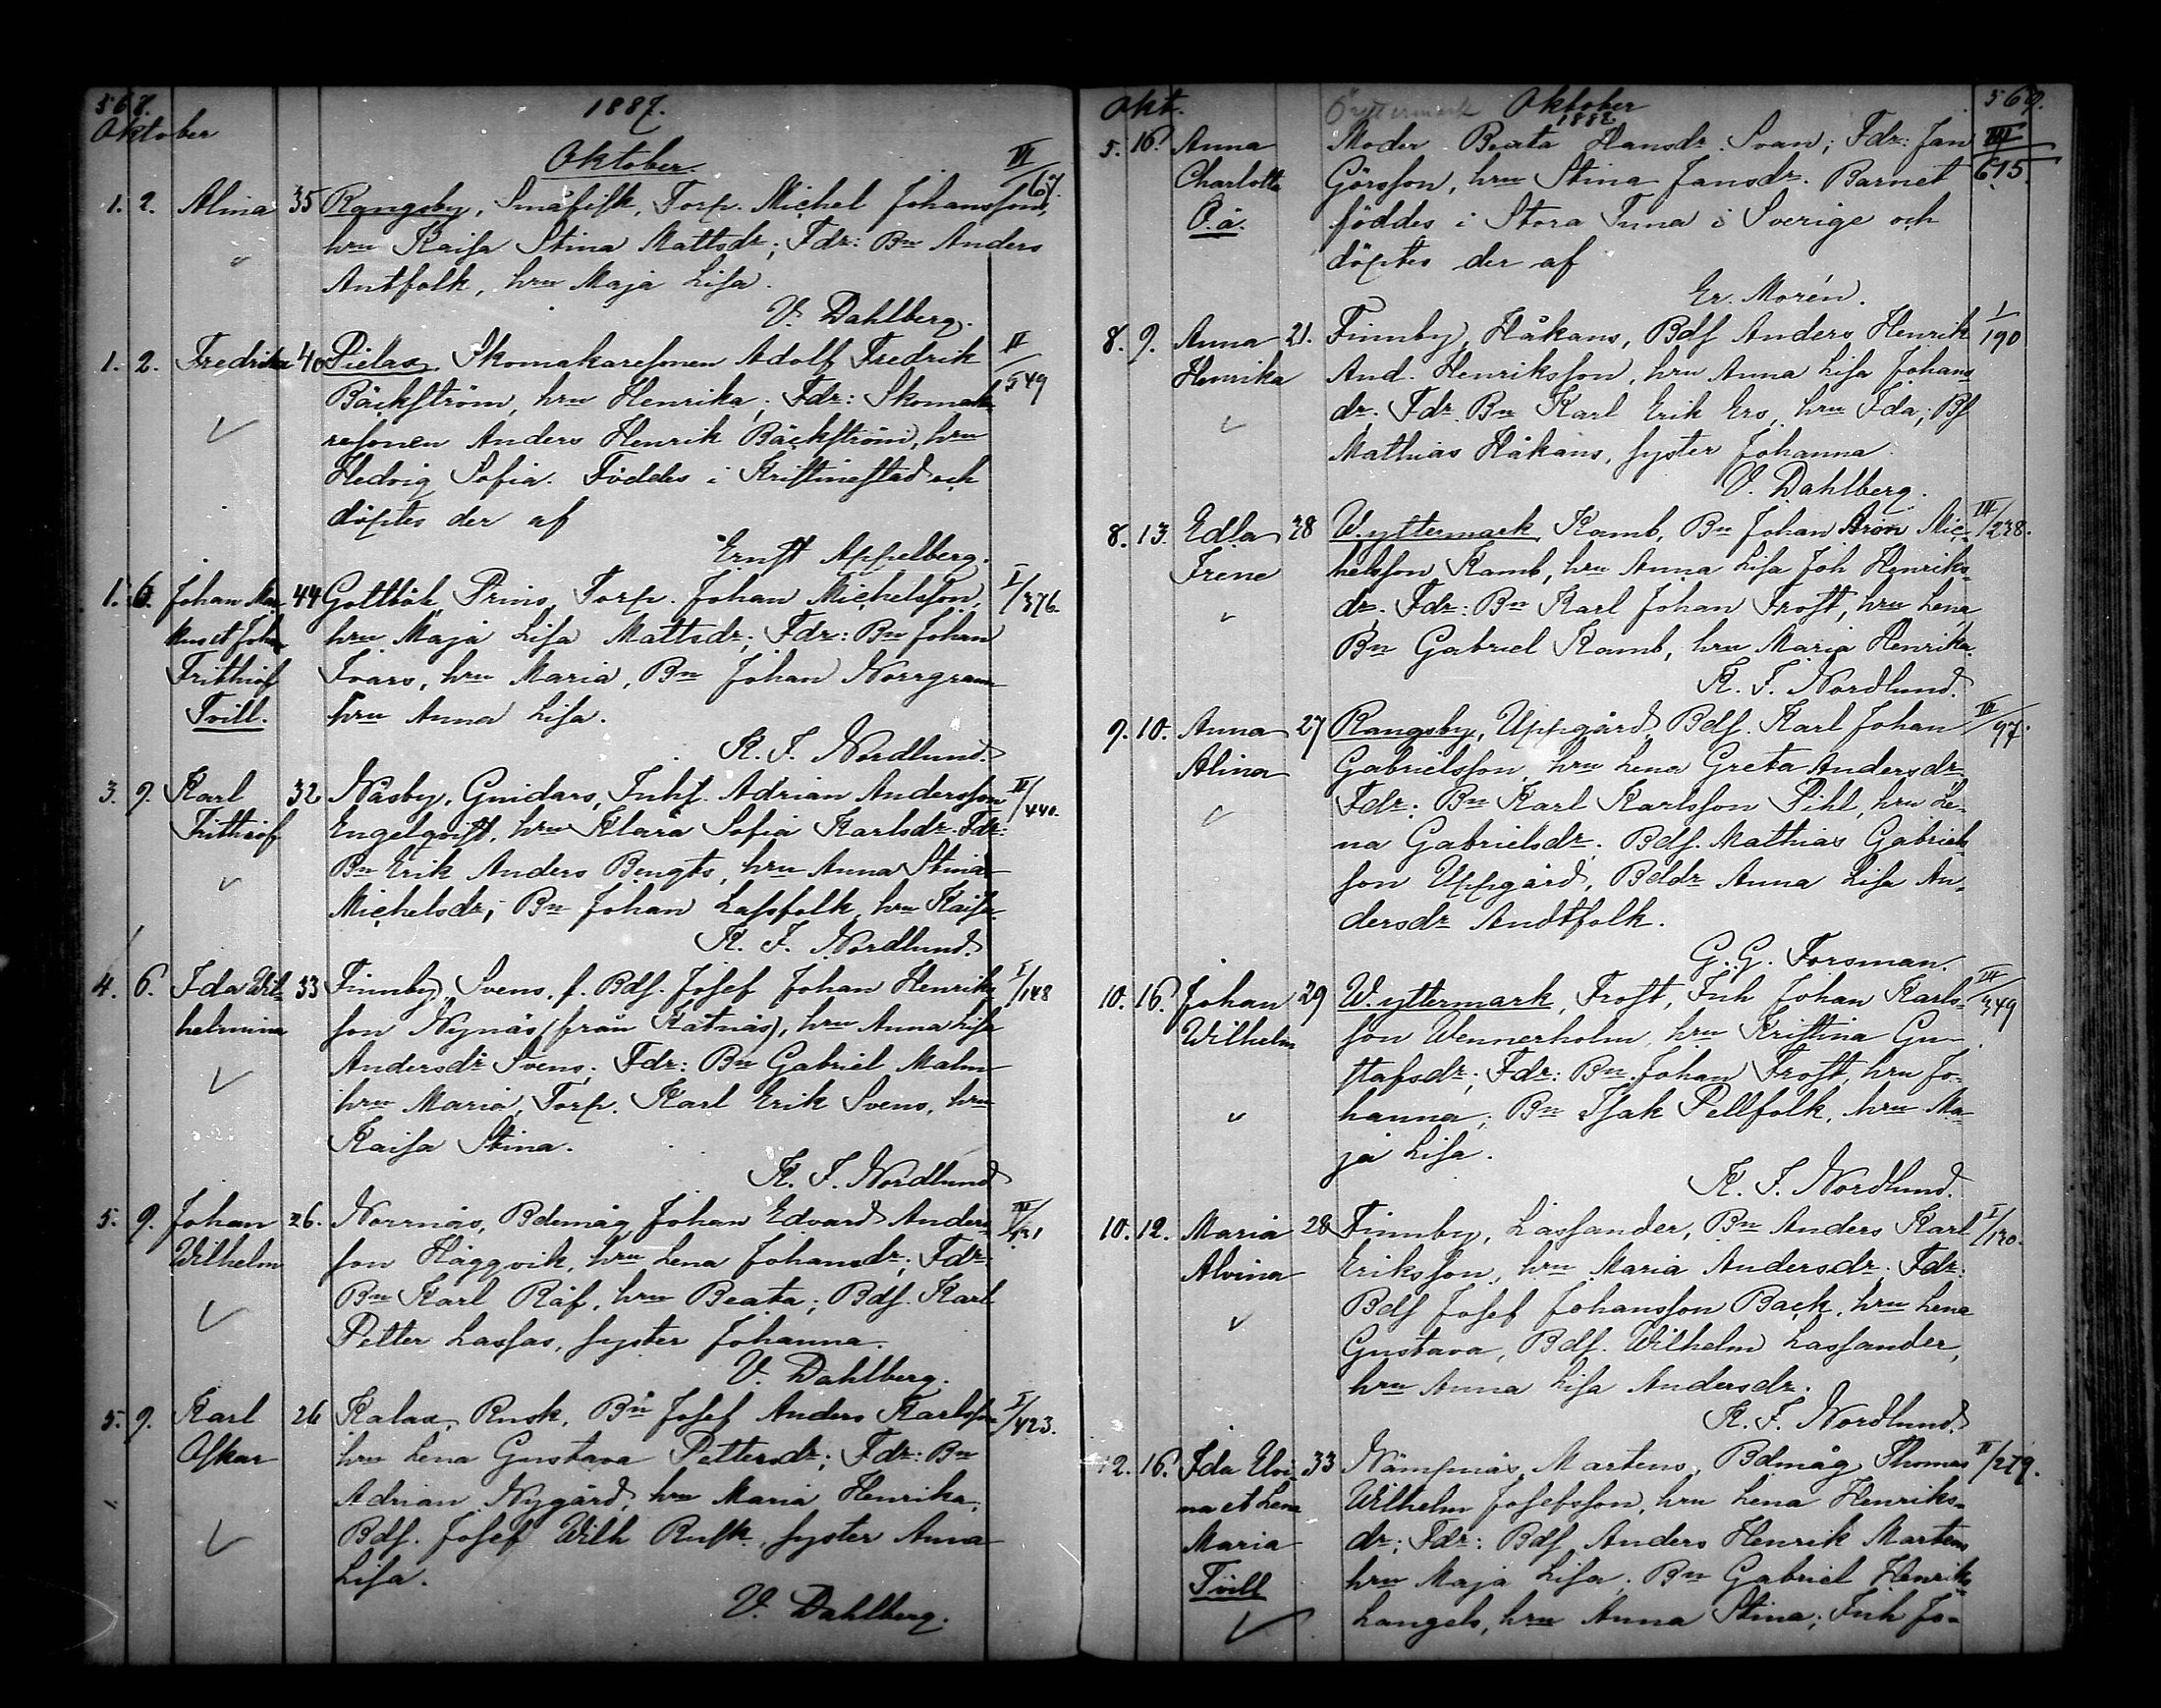 568.
Oktober
1887.
Oktober.
1. 2. Alina 35 Rangsby, Småfisk, Torp. Michel Johansson, III/67.
hru Kaisa Stina Mattsdr; Fdr: Bn Anders
Antfolk, hru Maja Lisa.
V. Dahlberg.
1. 2. Fredrika 40 Pielax, Skomakaresonen Adolf Fredrik II/549
Bäckström, hru Henrika; Fdr: Skomaka
resonen Anders Henrik Bäckström, hru
Hedvig Sofia. Föddes i Kristinestad och
döptes der af
Ernst Appelberg.
1. 6. Johan 44 Gottbök, Prins, Torp. Johan Michelsson, I/376.
et Joha hru Maja Lisa Mattsdr; Fdr: Bn Johan
Frithiof Ivars, hru Maria, Bn Johan Norrgran
Tvill. hru Anna Lisa.
K. F. Nordlund.
3. 9. Karl 32 Näsby, Gnidars, Inhs. Adrian Andersson II/440.
Frithiof Engelqvist, hru Klara Sofia Karlsdr. Fdr:
Bn Erik Anders Bengts, hru Anna Stina
Michelsdr; Bn Johan Lassfolk, hru Kaisa.
K. F. Nordlund.
4. 6. Ida Wil- 33 Finnby, Svens, f. Bds. Josef Johan Henriks I/148
helmina son Nynäs (från Kåtnäs), hru Anna Lisa
Andersdr Svens; Fdr: Bn Gabriel Malm
hru Maria, Torp. Karl Erik Svens, hru
Kaisa Stina.
K. F. Nordlund
5. 9. Johan 26. Norrnäs, Bdemåg Johan Edvard Anders-
Wilhelm son Häggvik, hru Lena Johansdr; Fdr:
Bn Karl Räf, hru Beata; Bds. Karl
Petter Lassas, syster Johanna.
V. Dahlberg.
5. 9. Karl 26 Kalax, Rusk, Bn Josef Anders Karlsson I/423.
Oskar hru Lena Gustava Pettersdr; Fdr: Bn
Adrian Nygård, hru Maria Henrika;
Bds. Josef Wilh Rusk, syster Anna
Lisa.
V. Dahlberg.
Okt. Öfvermark Oktober 569.
1887
5. 16. Anna Moder Beata Hansdr Svan; Fdr: Jan III
Charlotta Görsson, hru Stina Jansdr. Barnet 615.
O.ä. föddes i Stora Tuna i Sverige och
döptes der af
Er. Morén.
8. 9. Anna 21. Finnby, Håkans, Bds Anders Henrik I/190
Henrika And. Henriksson, hru Anna Lisa Johans
dr. Fdr. Bn Karl Erik Ers, hru Ida; Bs
Mathias Håkans, syster Johanna.
V. Dahlberg.
8. 13. Edla 38 W.yttermark, Ramb, Bn Johan Aron Mic- III/238.
Irene helsson Ramb, hru Anna Lisa Joh Henriks-
dr. Fdr: Bn Karl Johan Frost, hru Lena,
Bn Gabriel Ramb, hru Maria Henrika.
K. F. Nordlund.
9. 10. Anna 27 Rangsby, Uppgård, Bds. Karl Johan III/97.
Alina Gabrielsson, hru Lena Greta Andersdr
Fdr: Bn Karl Karlsson Pihl, hru Le-
na Gabrielsdr; Bds. Mathias Gabriels
son Uppgård, Bddr Anna Lisa An-
dersdr Andtfolk.
G. G. Forsman.
10. 16. Johan 29 W.yttermark, Frost, Inh Johan Karls- III/349
Wilhelm son Wennerholm, hru Kristina Gu-
stafsdr; Fdr: Bn Johan Frost, hru Jo-
hanna; Bn Isak Pellfolk, hru Ma-
ja Lisa.
K. F. Nordlund.
10. 12. Maria 28 Finnby, Lassander, Bn Anders Karl I/130.
Alvina Eriksson, hru Maria Andersdr. Fdr:
Bds Josef Johansson Back, hru Lena
Gustava, Bds. Wilhelm Lassander,
hru Anna Lisa Andersdr.
K. F. Nordlund.
12. 16. Ida Elvi- 33 Nämpnäs, Martens, Bdmåg Thomas II/279.
na et Lena Wilhelm Josefsson, hru Lena Henriks-
Maria dr; Fdr: Bds Anders Henrik Martens
Tvill hru Maja Lisa; Bn Gabriel Henriks
Langels, hru Anna Stina; Inh Jo-